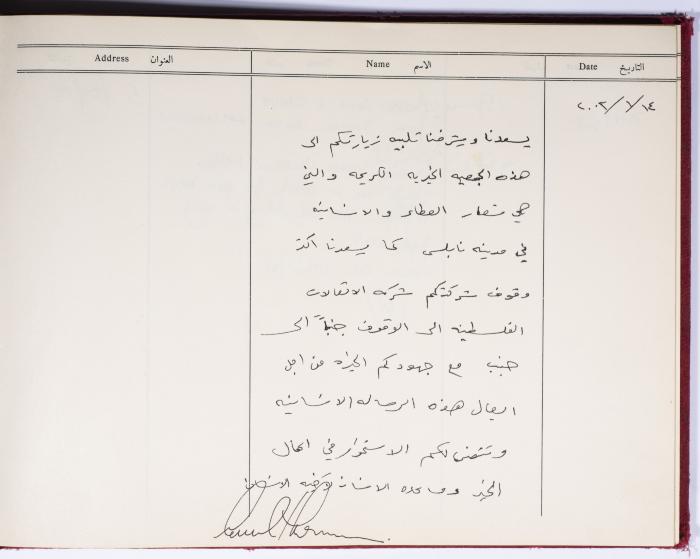 Address العنوان Name الاسم Date التاريخ
٢٠٠٢/٧/١٤
يسعدنا ويشرفنا تلبيه زيارتكم الى
هذه الجمعيه الخيريه الكريمه والتي
هي شعار العطاء والانسانيه
في مدينه نابلس كما يسعدنا اكثر
وقوف شركتكم شركه الاتصالات
الفلسطينيه الى الوقوف جنباً الى
جنب مع جهودكم الخيره من اجل
ايصال هذه الرساله الانسانيه
ونتمنى لكم الاستمرار في اعمال
الخير ومساعده الانسان